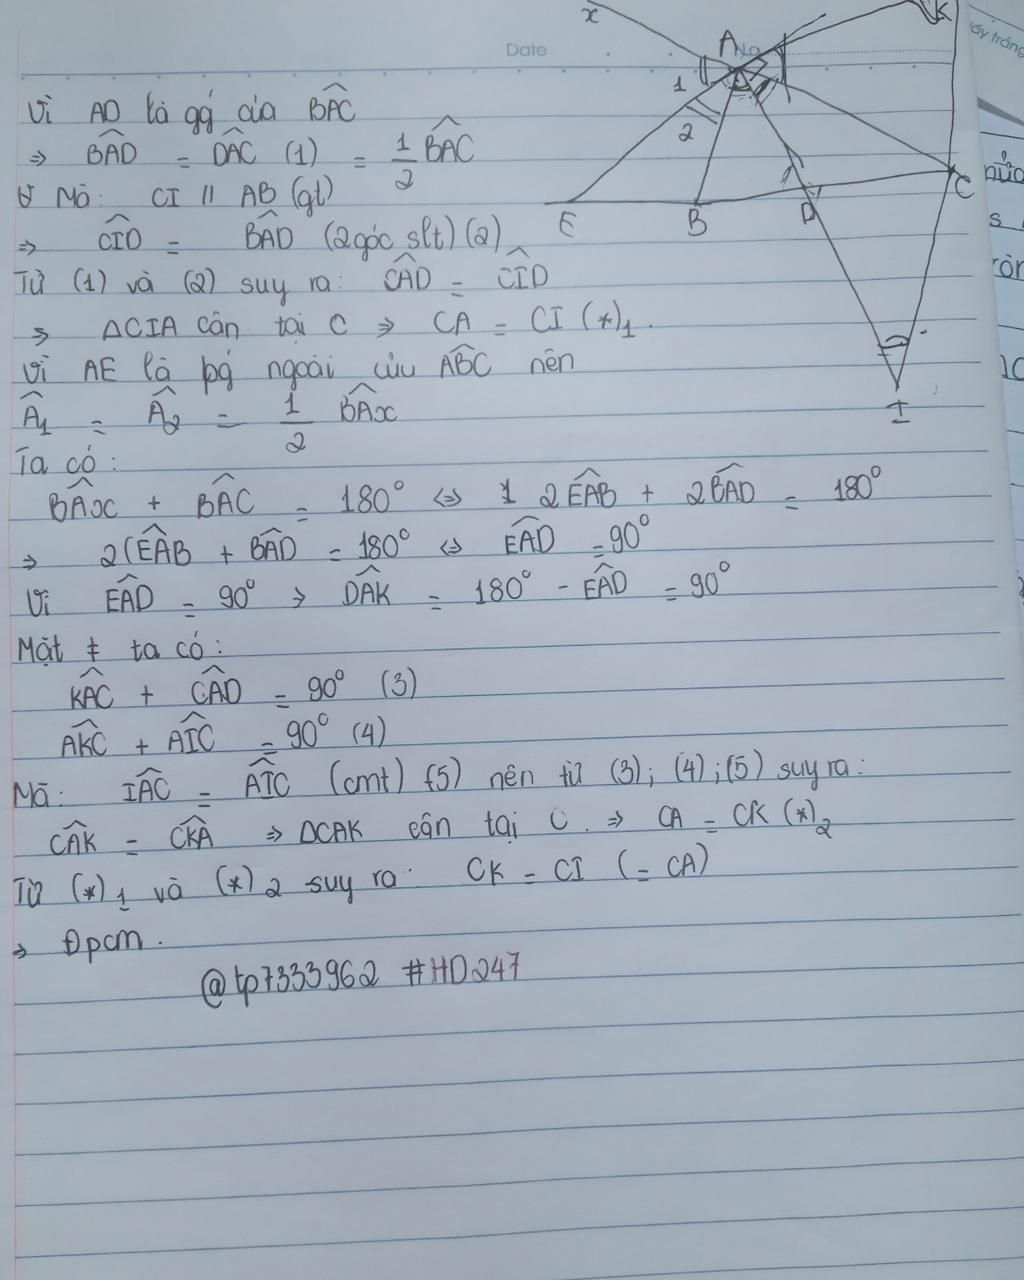 x
K
Date
No
A
1
2
E
B
D
C
I
Vì AD là gg của B̂AC
⇒ B̂AD = D̂AC (1) = 1/2 B̂AC
Mà: CI // AB (gt)
⇒ ĈID = B̂AD (2góc slt) (2)
Từ (1) và (2) suy ra: ĈAD = ĈID
⇒ ΔCIA cân tại C ⇒ CA = CI (*)₁.
Vì AE là pg ngoài của ÂBC nên
Â₁ = Â₂ = 1/2 B̂Ax
Ta có:
B̂Ax + B̂AC = 180° ⇔ 2ÊAB + 2B̂AD = 180°
⇒ 2(ÊAB + B̂AD = 180° ⇔ ÊAD = 90°
Vì ÊAD = 90° ⇒ D̂AK = 180° - ÊAD = 90°
Mặt ≠ ta có:
K̂AC + ĈAD = 90° (3)
ÂKC + ÂIC = 90° (4)
Mà: ÎAC = ÂIC (cmt) (5) nên từ (3); (4); (5) suy ra:
ĈAK = ĈKA ⇒ ΔCAK cân tại C. ⇒ CA = CK (*)₂
Từ (*)₁ và (*)₂ suy ra: CK = CI (= CA)
⇒ Đpcm.
@tp7333962 #HD247